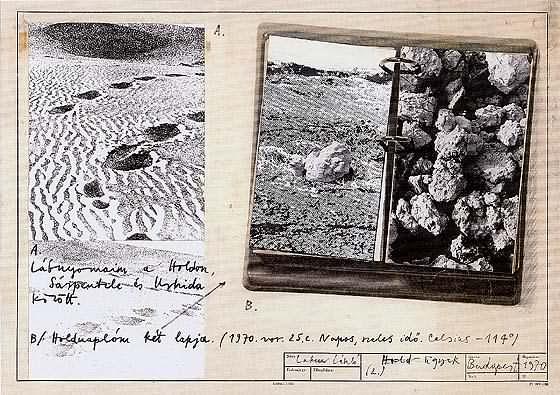 A.
A.
Lábnyomaim a Holdon,
Sárpentele és
között.
B.
B/ Holdnaplóm két lapja. (1970. 25. Napos, szeles idő. Celsius −114°)
Lakner László
Hold-ügyek
(2.)
Budapest
1970